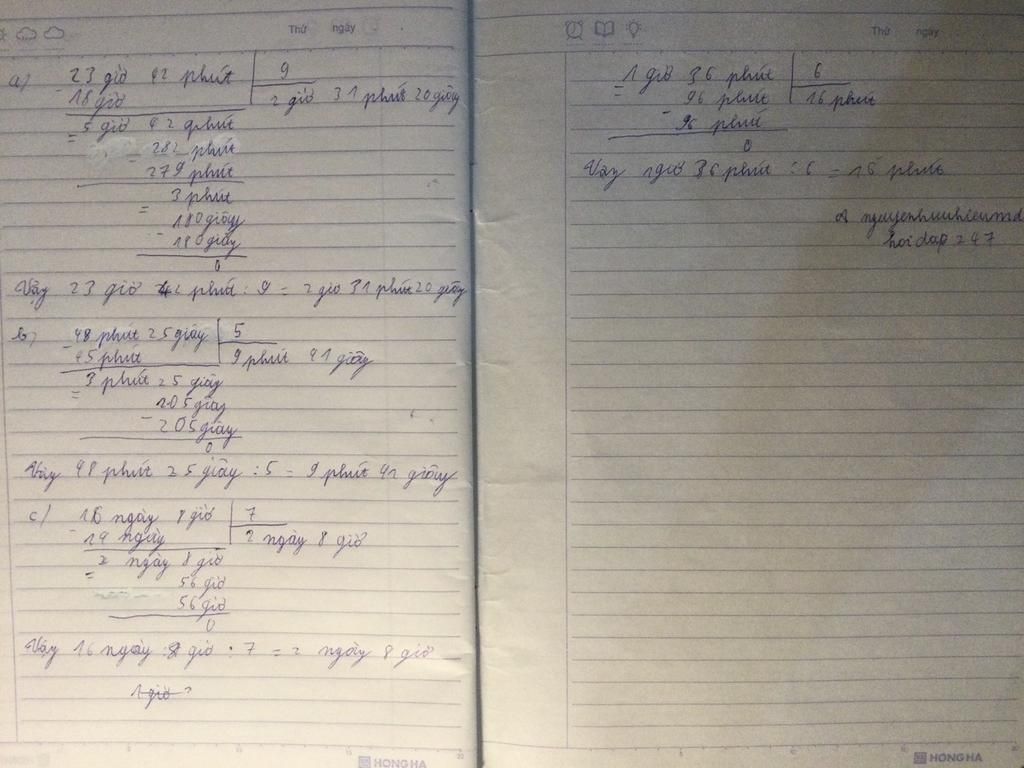 Thứ ngày
a) 23 giờ 42 phút 9
18 giờ 2 giờ 31 phút 20 giây
= 5 giờ 42 phút
282 phút
279 phút
= 3 phút
180 giây
- 180 giây
0
Vậy 23 giờ 42 phút : 9 = 2 giờ 31 phút 20 giây
b) - 48 phút 25 giây 5
45 phút 9 phút 41 giây
= 3 phút 25 giây
205 giây
- 205 giây
0
Vậy 48 phút 25 giây : 5 = 9 phút 41 giây
c) - 16 ngày 8 giờ 7
14 ngày 2 ngày 8 giờ
= 2 ngày 8 giờ
56 giờ
56 giờ
0
Vậy 16 ngày 8 giờ : 7 = 2 ngày 8 giờ
1 giờ
HONG HA
Thứ ngày
1 giờ 36 phút 6
= 96 phút 16 phút
- 96 phút
0
Vậy 1 giờ 36 phút : 6 = 16 phút
nguyenhuuhieumd
hoidap247
HONG HA